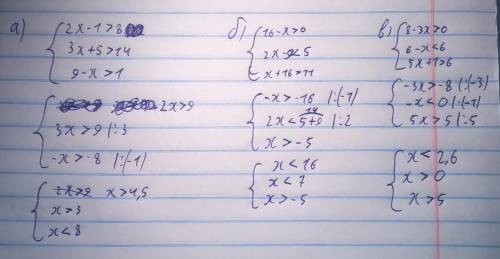 а) { 2x-1>8
3x+5>14
9-x>1
{ 2x>9
3x>9 |:3
-x>-8 |:(-1)
{ x>4,5
x>3
x<8
б) { 16-x>0
2x-9<5
x+16>11
{ -x>-16 |:(-1)
14
2x<5+9 |:2
x>-5
{ x<16
x<7
x>-5
в) { 8-3x>0
6-x<6
5x+1>6
{ -3x>-8 |:(-3)
-x<0 |:(-1)
5x>5 |:5
{ x<2,6
x>0
x>5